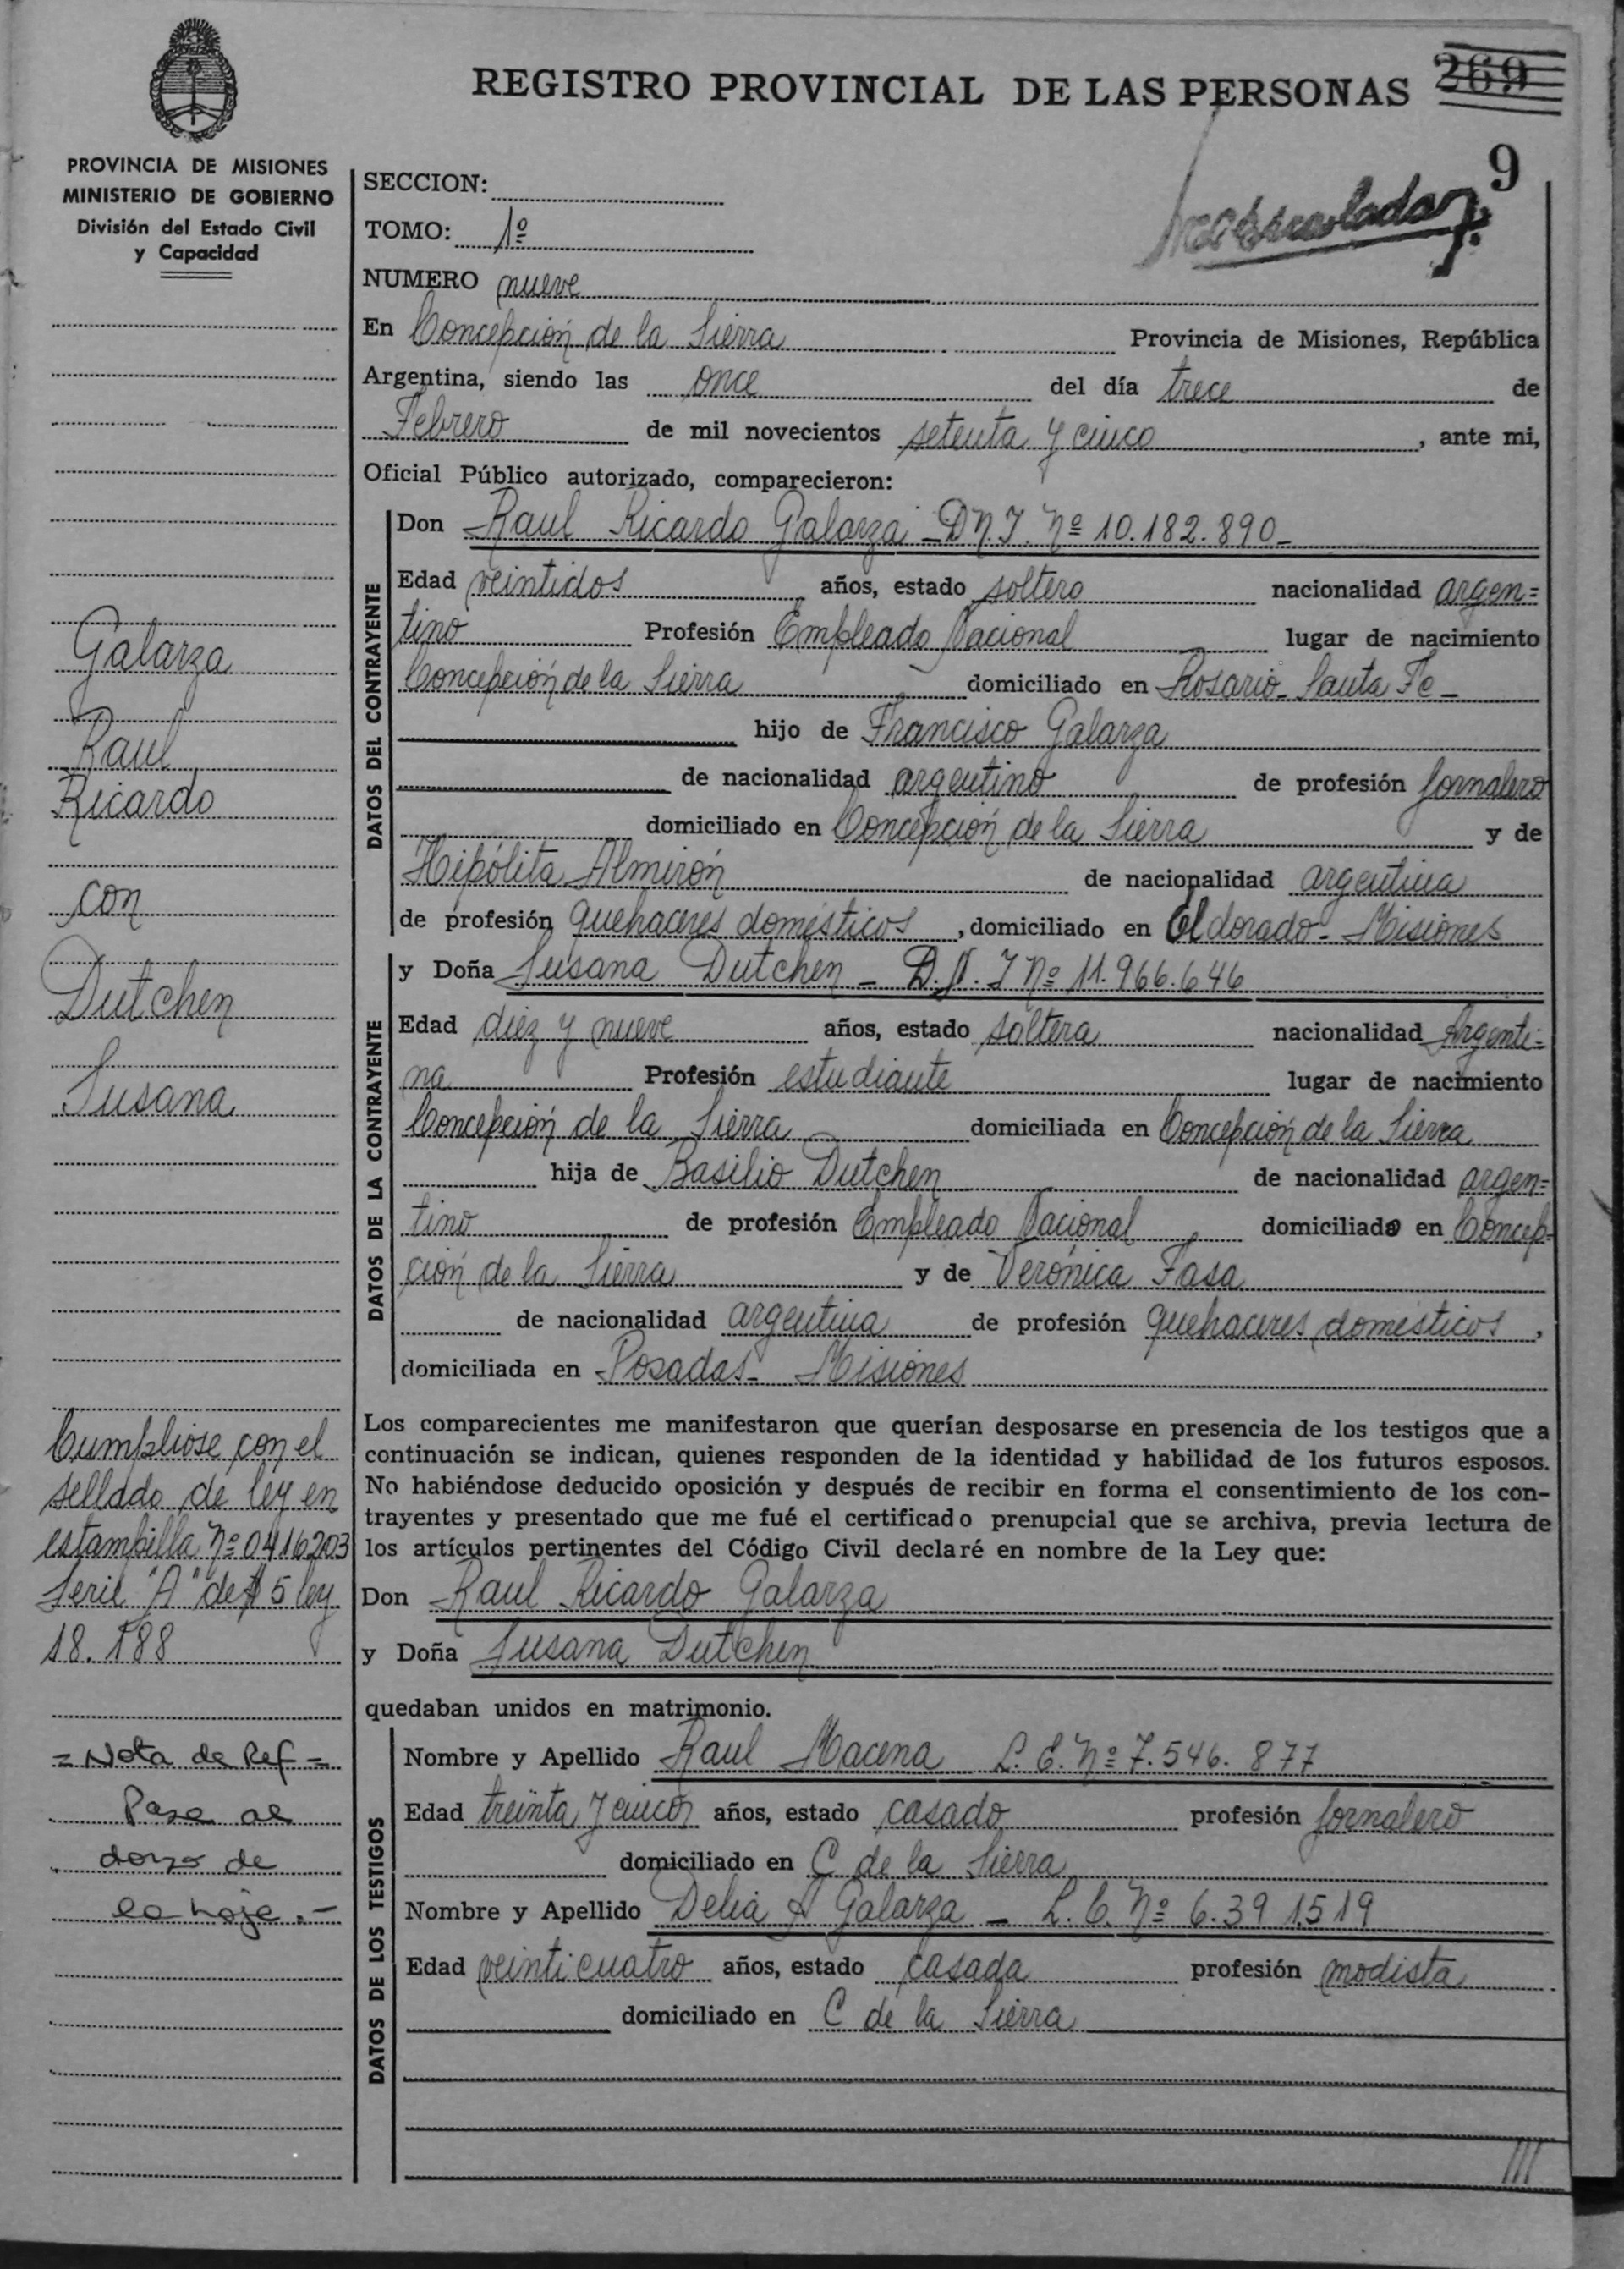 REGISTRO PROVINCIAL DE LAS PERSONAS 269
9
PROVINCIA DE MISIONES
MINISTERIO DE GOBIERNO
División del Estado Civil
y Capacidad
SECCION:
TOMO: 1º
NUMERO nueve
En Concepción de la Sierra Provincia de Misiones, República
Argentina, siendo las once del día trece de
Febrero de mil novecientos setenta y cinco, ante mi,
Oficial Público autorizado, comparecieron:
DATOS DEL CONTRAYENTE
Don Raul Ricardo Galarza - D.N.I. Nº 10.182.890-
Edad veintidos años, estado soltero nacionalidad argen=
tino Profesión Empleado Nacional lugar de nacimiento
Concepción de la Sierra domiciliado en Rosario- Santa Fe-
hijo de Francisco Galarza
de nacionalidad argentino de profesión Jornalero
domiciliado en Concepción de la Sierra y de
Hipólita Almirón de nacionalidad argentina
de profesión quehaceres domésticos, domiciliado en Eldorado- Misiones
DATOS DE LA CONTRAYENTE
y Doña Susana Dutchen - D.N.I Nº 11.966.646
Edad diez y nueve años, estado soltera nacionalidad Argenti=
na Profesión estudiante lugar de nacimiento
Concepción de la Sierra domiciliada en Concepción de la Sierra
hija de Basilio Dutchen de nacionalidad argen=
tino de profesión Empleado Nacional domiciliado en Concep=
ción de la Sierra y de Verónica Fasa
de nacionalidad argentina de profesión quehaceres domésticos,
domiciliada en Posadas- Misiones
Los comparecientes me manifestaron que querían desposarse en presencia de los testigos que a
continuación se indican, quienes responden de la identidad y habilidad de los futuros esposos.
No habiéndose deducido oposición y después de recibir en forma el consentimiento de los con-
trayentes y presentado que me fué el certificado prenupcial que se archiva, previa lectura de
los artículos pertinentes del Código Civil declaré en nombre de la Ley que:
Don Raul Ricardo Galarza
y Doña Susana Dutchen
quedaban unidos en matrimonio.
DATOS DE LOS TESTIGOS
Nombre y Apellido Raul Macena L.E. Nº 7.546.877
Edad treinta y cinco años, estado casado profesión Jornalero
domiciliado en C de la Sierra
Nombre y Apellido Delia A Galarza - L.C. Nº 6.391519
Edad veinticuatro años, estado casada profesión modista
domiciliado en C de la Sierra
///
Galarza
Raul
Ricardo
con
Dutchen
Susana
Cumpliose con el
sellado de ley en
estampilla Nº 0416203
Serie "A" de $ 5 ley
18.188
= Nota de Ref =
Pase al
dorso de
la hoja.-